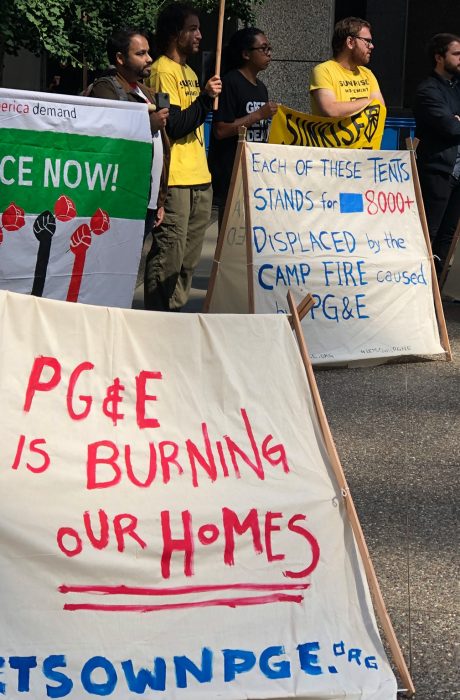 erica demand
CE NOW!
SUNRISE
MOVEMENT
SUNRISE
EACH OF THESE TENTS
STANDS for 8000+
DISPLACED by the
CAMP FIRE caused
by PG&E
PG&E
IS BURNING
OUR HOMES
ETSOWNPGE.ORG